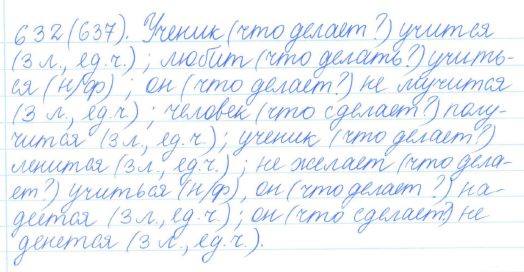 632(637). Ученик (что делает?) учится
(3 л., ед.ч.); любит (что делать?) учить-
ся (н/ф); он (что делает?) не мучится
(3 л., ед.ч.); человек (что сделает?) полу-
чится (3 л., ед.ч.); ученик (что делает?)
ленится (3 л., ед.ч.); не желает (что дела-
ет?) учиться (н/ф), он (что делает?) на-
деется (3 л., ед.ч.); он (что сделает?) не
денется (3 л., ед.ч.).